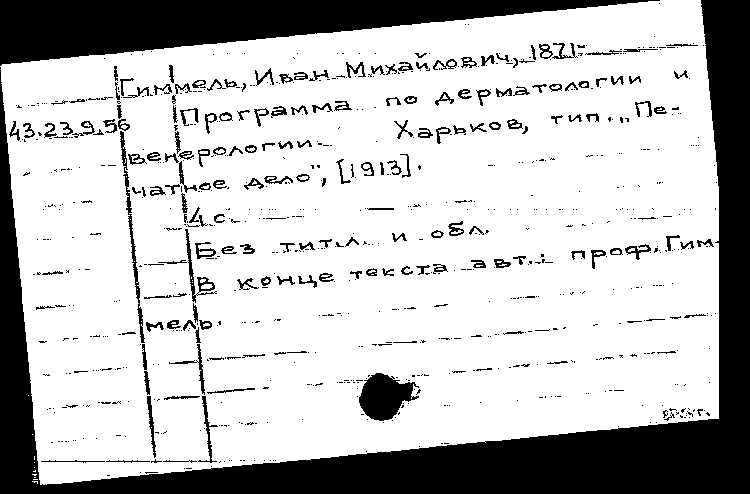 Гиммель, Иван Михайлович, 1871-
43.23.9.56 Программа по дерматологии и
венерологии. Харьков, тип. „Пе-
чатное дело", [1913].
4 с.
Без тит.л. и обл.
В конце текста авт.: проф. Гим-
мель.